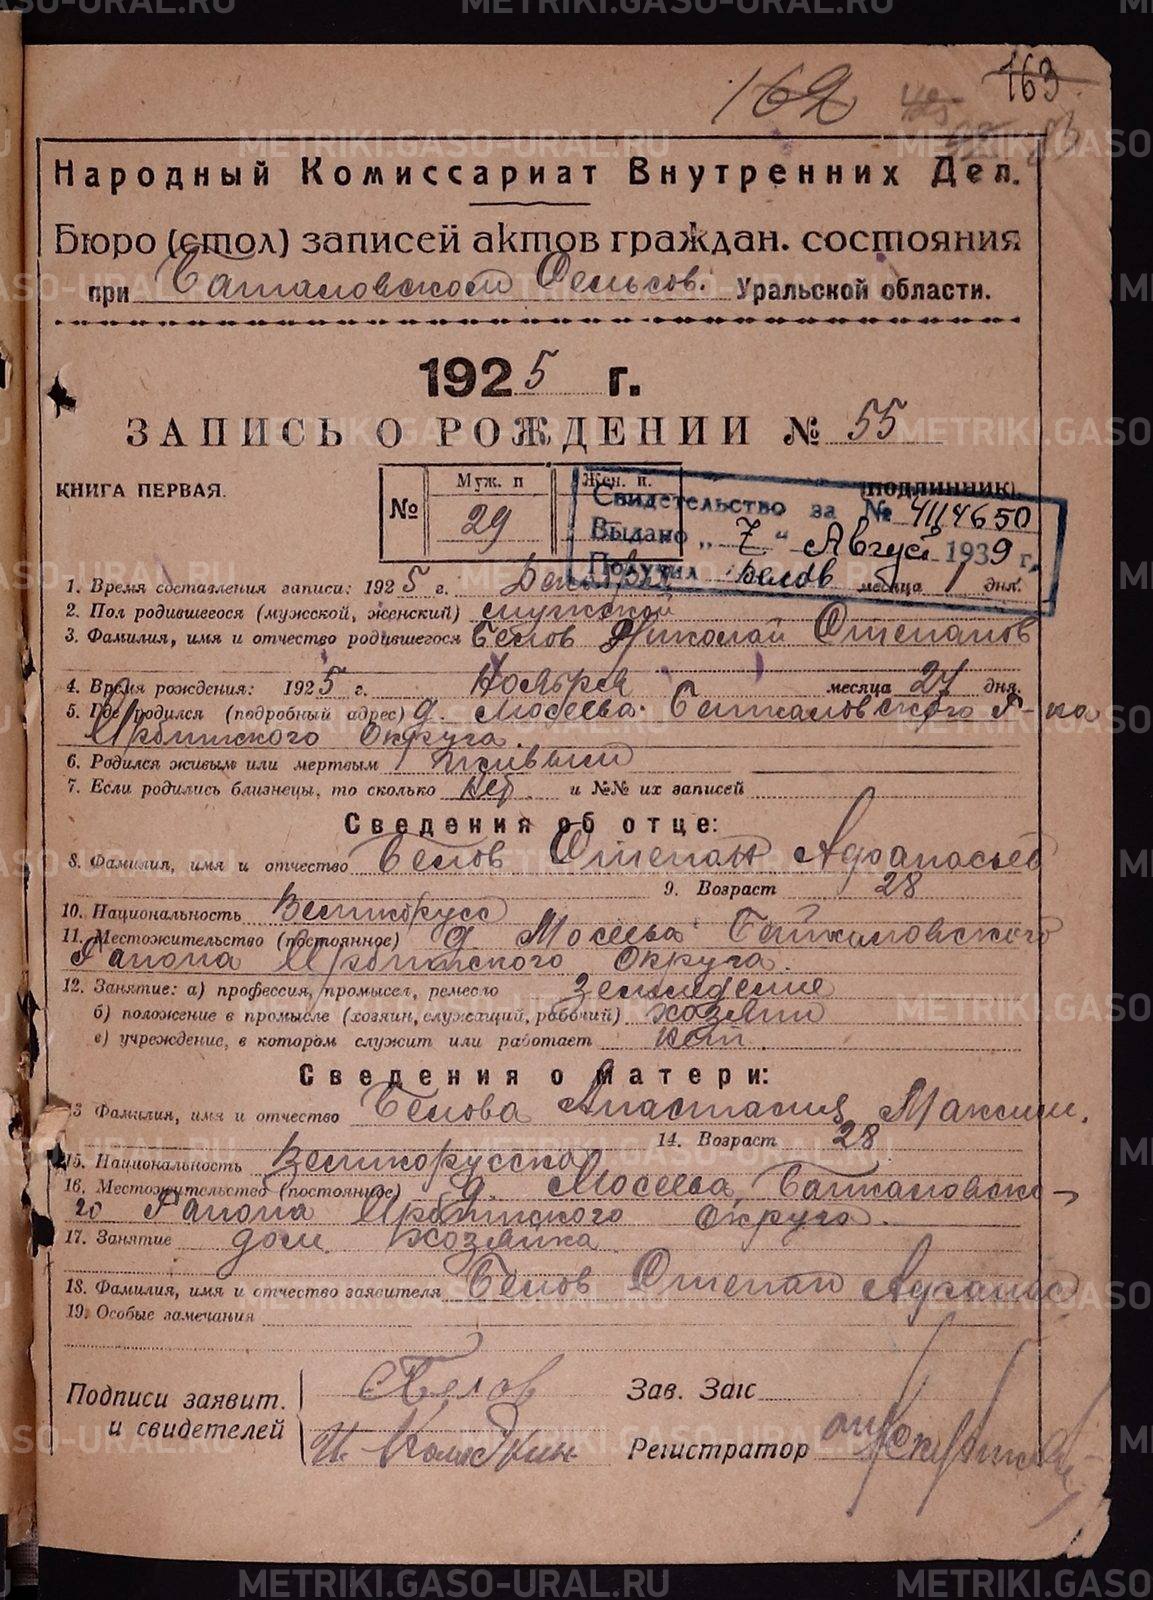 162 163
Народный Комиссариат Внутренних Дел.
Бюро (стол) записей актов граждан. состояния
при Баткаловском Сельсов. Уральской области.
1925 г.
ЗАПИСЬ О РОЖДЕНИИ № 55
КНИГА ПЕРВАЯ. (ПОДЛИННИК).
№ Муж. п Жен. п.
29
Свидетельство за № 4114650
Выдано „7“ Август 1939 г.
Получил Белов
1. Время составления записи: 1925 г. Декабря месяца 1 дня.
2. Пол родившегося (мужской, женский) мужской
3. Фамилия, имя и отчество родившегося Белов Николай Степанов
4. Время рождения: 1925 г. Ноября месяца 27 дня.
5. Где родился (подробный адрес) д. Мосеева Байкаловского Р-на
Ирбитского Округа.
6. Родился живым или мертвым живым
7. Если родились близнецы, то сколько нет и №№ их записей
Сведения об отце:
8. Фамилия, имя и отчество Белов Степан Афанасьев
9. Возраст 28
10. Национальность Великорусс
11. Местожительство (постоянное) д. Мосеева Байкаловского
Района Ирбитского Округа.
12. Занятие: а) профессия, промысел, ремесло земледелие
б) положение в промысле (хозяин, служащий, рабочий) хозяин
в) учреждение, в котором служит или работает нет.
Сведения о матери:
13 Фамилия, имя и отчество Белова Анастасия Максим.
14. Возраст 28
15. Национальность Великорусска
16. Местожительство (постоянное) д. Мосеева, Байкаловско-
го Района Ирбитского Округа.
17. Занятие дом. хозяйка
18. Фамилия, имя и отчество заявителя Белов Степан Афанас
19. Особые замечания
Подписи заявит. и свидетелей
С Белов
Зав. Загс
Регистратор
METRIKI.GASO-URAL.RU